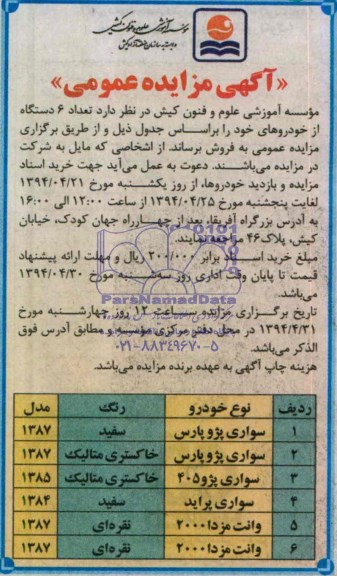 مؤسسه آموزشی علوم و فنون کیش
وابسته به سازمان منطقه آزاد کیش
«آگهی مزایده عمومی»
مؤسسه آموزشی علوم و فنون کیش در نظر دارد تعداد ۶ دستگاه
از خودروهای خود را براساس جدول ذیل و از طریق برگزاری
مزایده عمومی به فروش برساند. از اشخاصی که مایل به شرکت
در مزایده می‌باشند. دعوت به عمل می‌آید جهت خرید اسناد
مزایده و بازدید خودروها، از روز یکشنبه مورخ ۱۳۹۴/۰۴/۲۱
لغایت پنجشنبه مورخ ۱۳۹۴/۰۴/۲۵ از ساعت ۱۲:۰۰ الی ۱۶:۰۰
به آدرس بزرگراه آفریقا، بعد از چهارراه جهان کودک، خیابان
کیش، پلاک ۴۶ مراجعه نمایند.
مبلغ خرید اسناد برابر ۲۰۰/۰۰۰ ریال و مهلت ارائه پیشنهاد
قیمت تا پایان وقت اداری روز سه‌شنبه مورخ ۱۳۹۴/۰۴/۳۰
می‌باشد.
ParsNamadData
تاریخ برگزاری مزایده ساعت ۱۲ روز چهارشنبه مورخ
۱۳۹۴/۴/۳۱ در محل دفتر مرکزی مؤسسه و مطابق آدرس فوق
الذکر می‌باشد.
۰۲۱-۸۸۳۴۹۶۷۰-۵
هزینه چاپ آگهی به عهده برنده مزایده می‌باشد.
ردیف نوع خودرو رنگ مدل
۱ سواری پژو پارس سفید ۱۳۸۷
۲ سواری پژو پارس خاکستری متالیک ۱۳۸۷
۳ سواری پژو ۴۰۵ خاکستری متالیک ۱۳۸۵
۴ سواری پراید سفید ۱۳۸۴
۵ وانت مزدا ۲۰۰۰ نقره‌ای ۱۳۸۷
۶ وانت مزدا ۲۰۰۰ نقره‌ای ۱۳۸۷